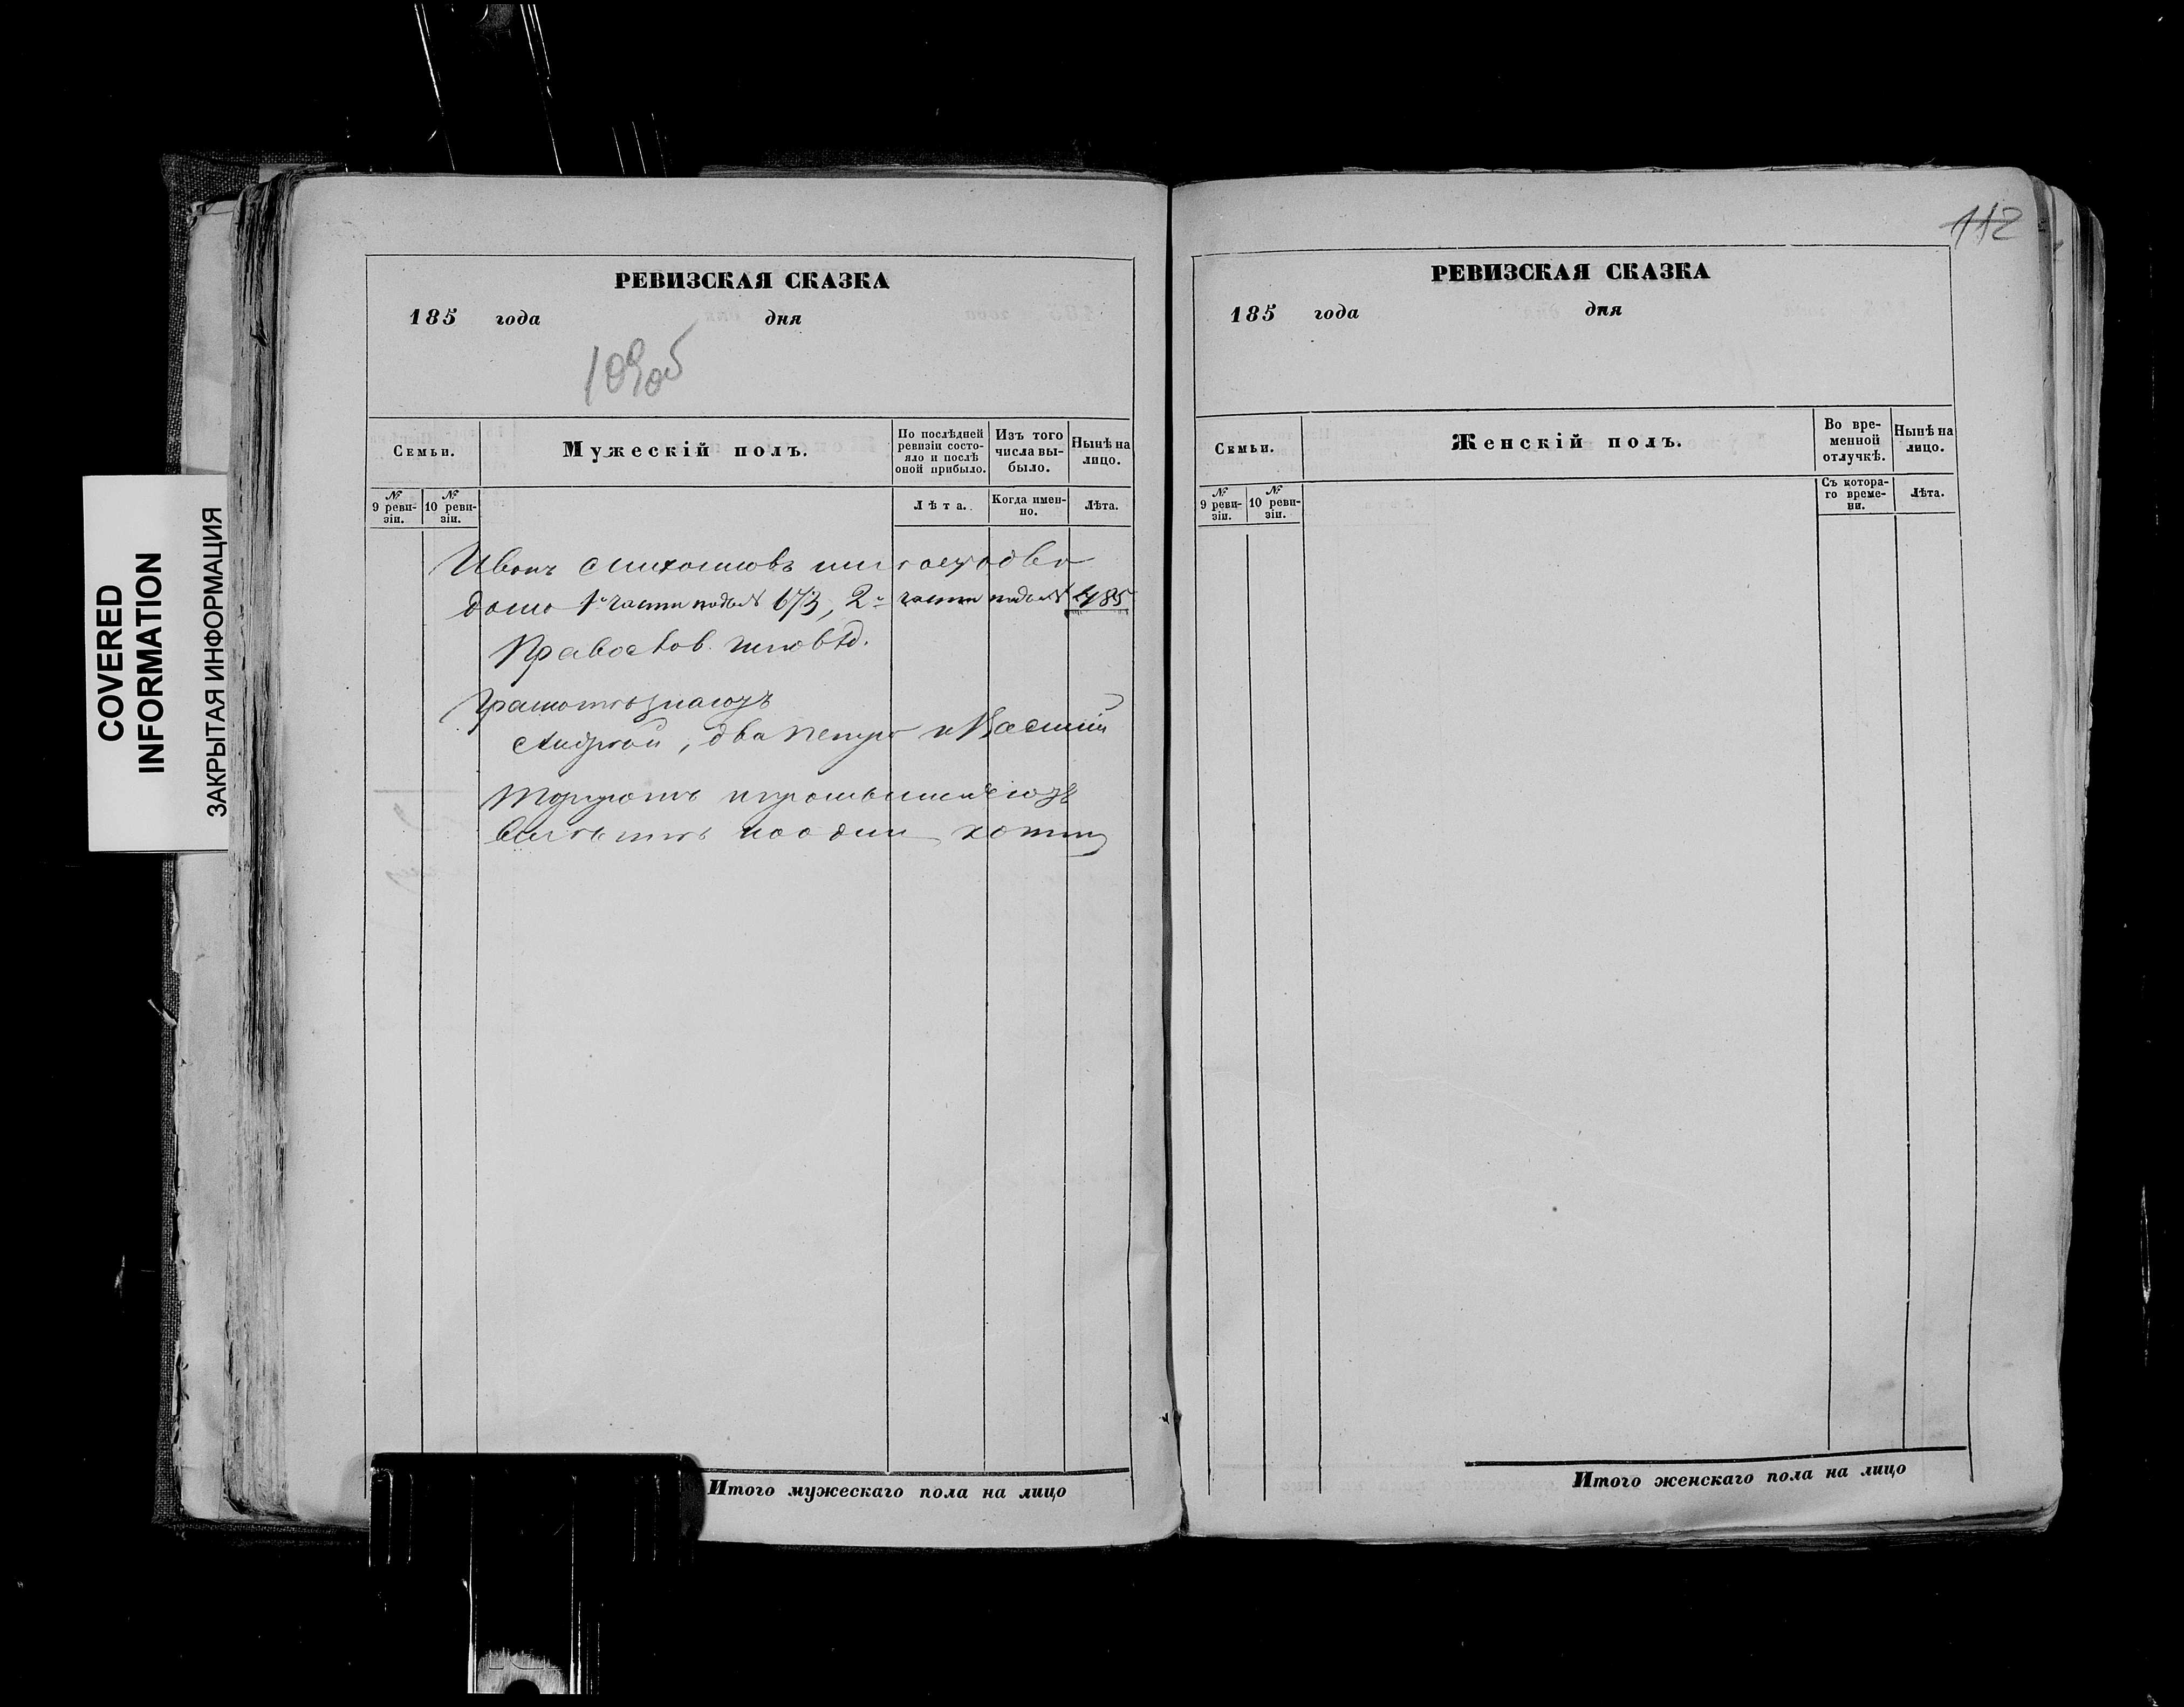 COVERED
INFORMATION
ЗАКРЫТАЯ ИНФОРМАЦИЯ
РЕВИЗСКАЯ СКАЗКА
185 года дня
109об
Семьи.
Мужескій полъ.
По послѣдней
ревизіи состо-
яло и послѣ
оной прибыло.
Изъ того
числа вы-
было.
Нынѣ на
лицо.
№
9 реви-
зіи.
№
10 реви-
зіи.
Лѣта.
Когда имен-
но.
Лѣта.
Иванъ два
дома 1й части подъ № 673, 2й части подъ № 485
Православ. исповѣд.
Грамотѣ знаютъ
Андрей, два Петра и Василій
Торгуютъ и промышляютъ
вмѣстѣ
Итого мужескаго пола на лицо
112
РЕВИЗСКАЯ СКАЗКА
185 года дня
Семьи.
Женскій полъ.
Во вре-
менной
отлучкѣ.
Нынѣ на
лицо.
№
9 реви-
зіи.
№
10 реви-
зіи.
Съ котора-
го време-
ни.
Лѣта.
Итого женскаго пола на лицо